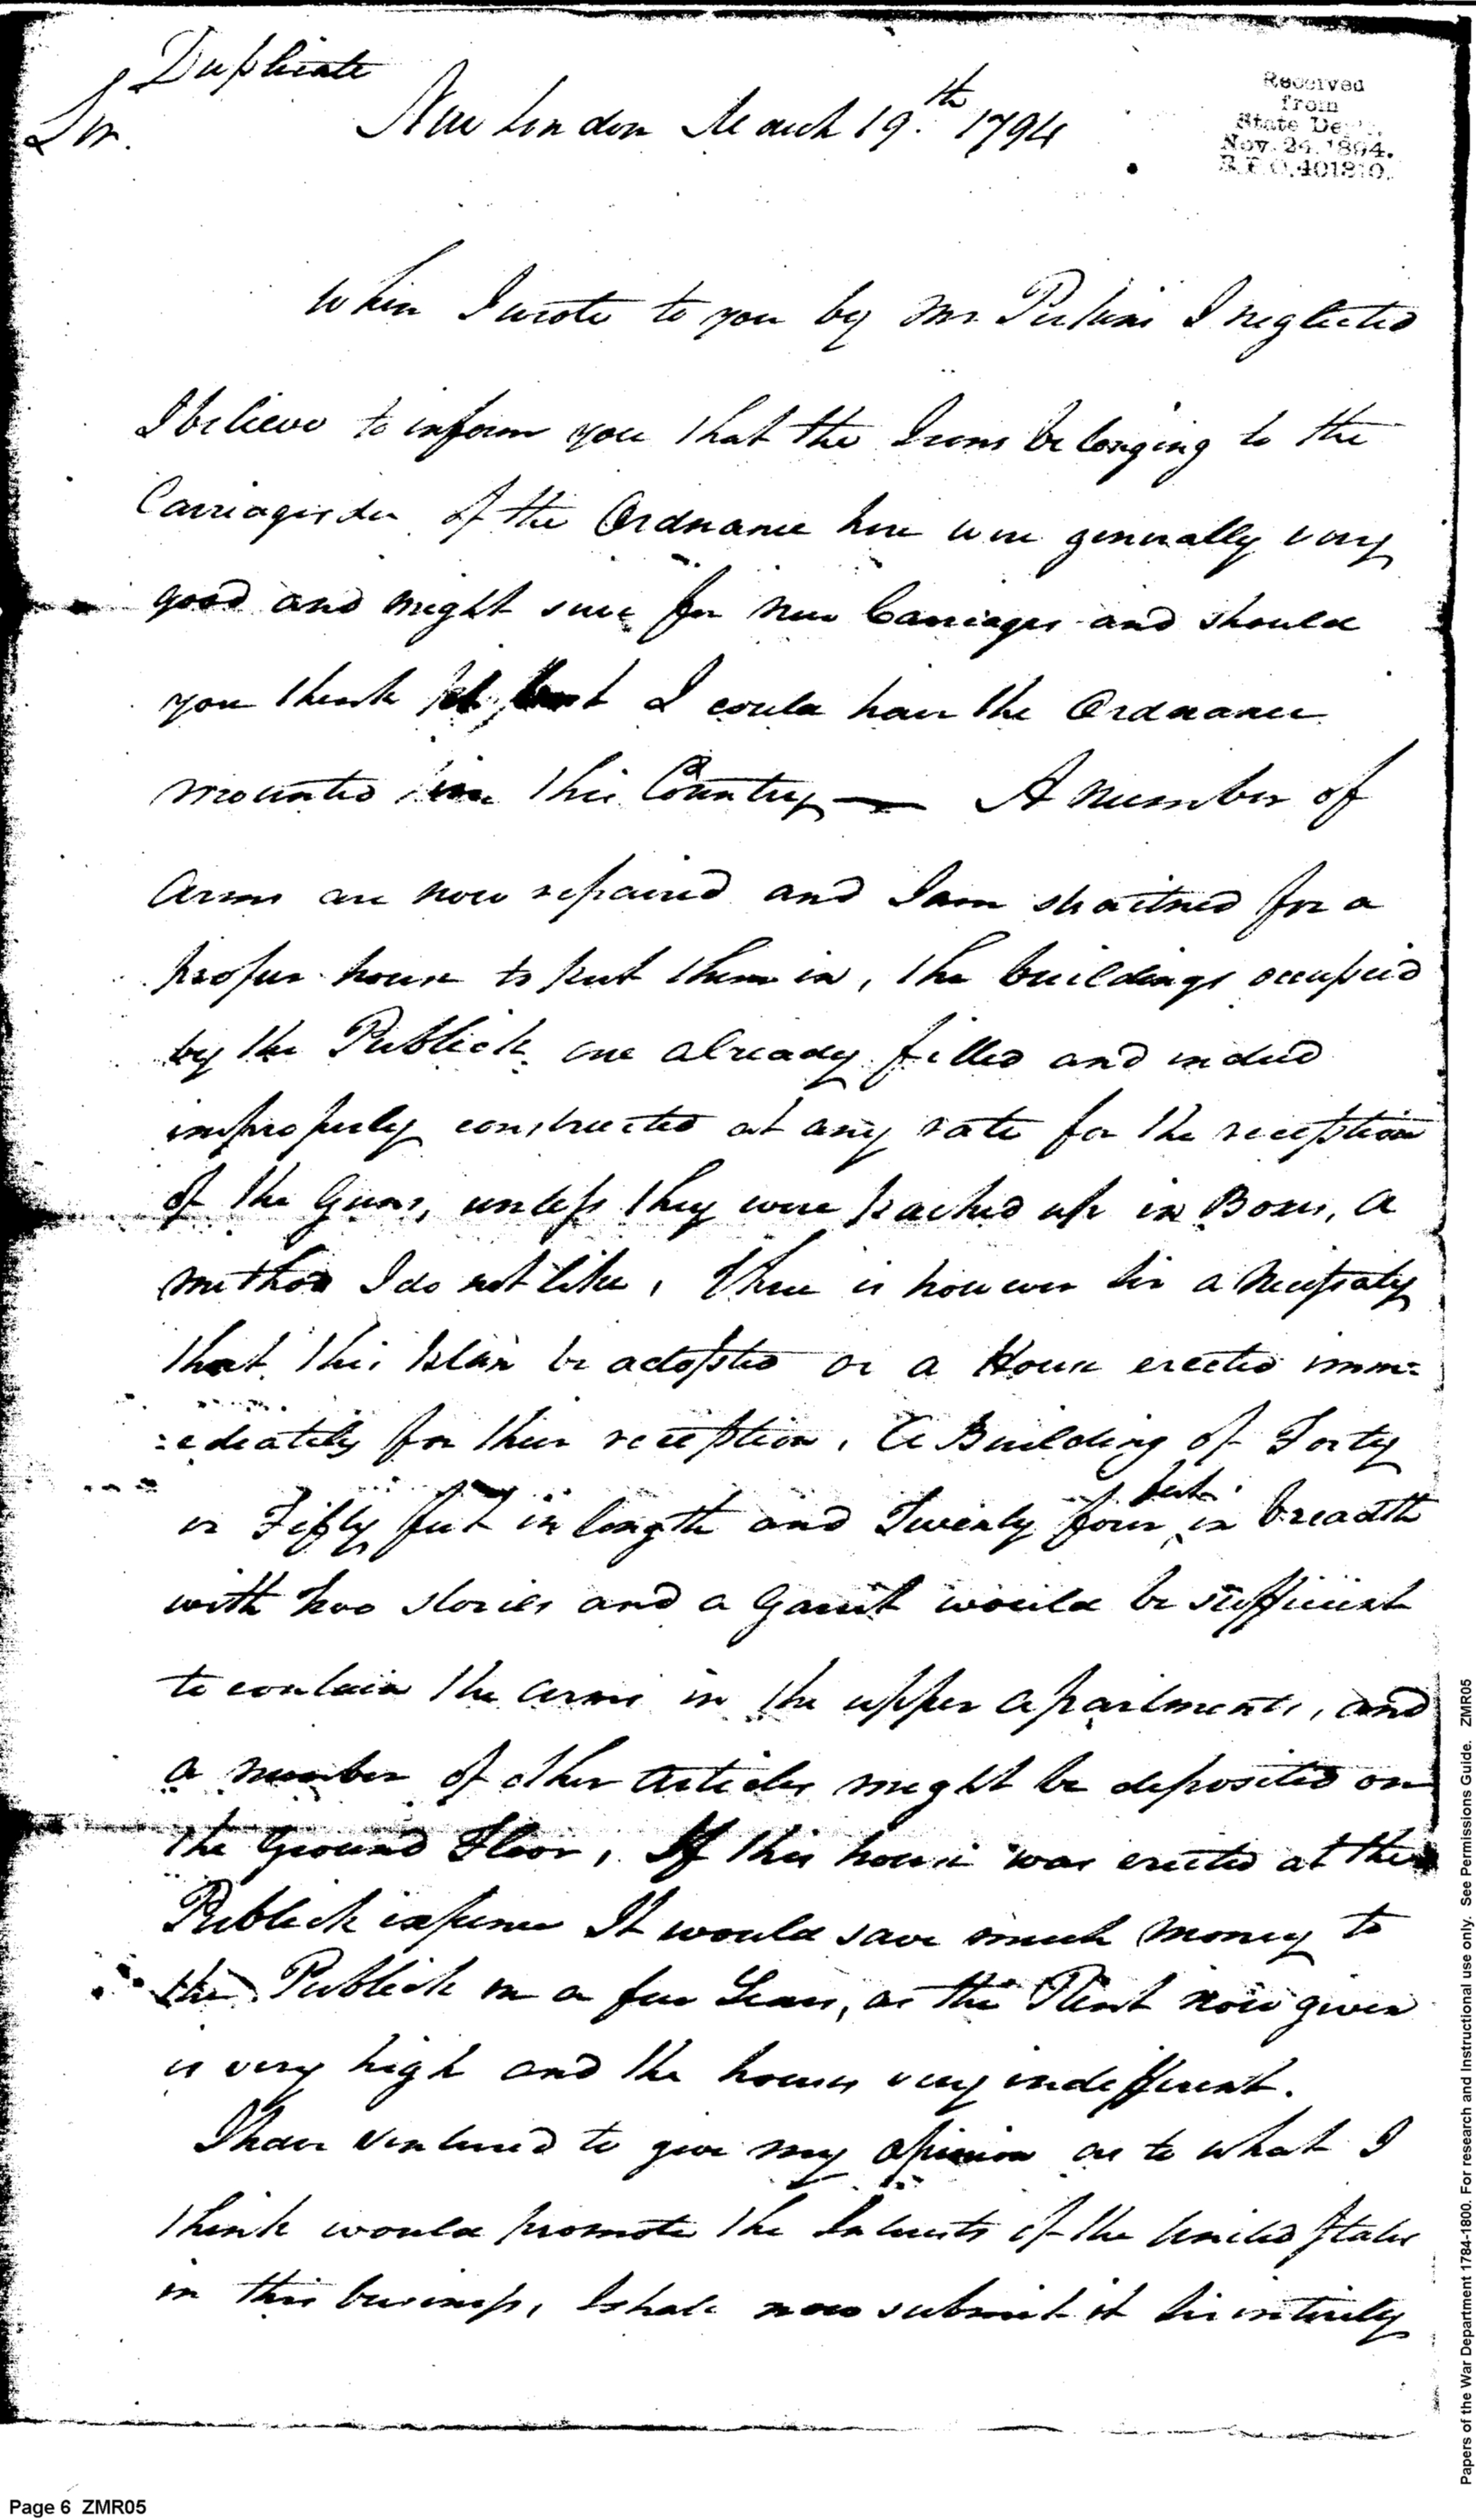 Duplicate
Sir.
New London March 19.th 1794
Received
from
State De
Nov. 24. 1894.
R.&P.O. 401810.
When I wrote to you by Mr. Perkins I neglected
I believe to inform you that the Irons belonging to the
Carriages &ca of the Ordnance here were generally very
good and might serve for new Carriages and should
you think I could have the Ordnance
mounted in this Country — A number of
Arms are now repaired and I am straitned for a
proper house to put them in, the buildings occupied
by the Publick are already filled and indeed
improperly constructed at any rate for the reception
of the Guns, unless they were packed up in Boxes, a
method I do not like, there is however Sir a necessity
that this plan be adopted or a House erected imm=
=ediately for their reception, A Building of Forty
or Fifty feet in length and Twenty four feet in breadth
with two stories and a Garret would be sufficient
to contain the arms in the upper apartments, and
a number of other Articles might be deposited on
the Ground Floor, If this house was erected at the
Publick expence It would save much Money to
the Publick in a few Years, as the Rent now given
is very high and the houses very indifferent.
I have ventured to give my opinion as to what I
think would promote the Interests of the United States
in this business, I shall now submit it Sir intirely
Page 6 ZMR05
Papers of the War Department 1784-1800. For research and Instructional use only. See Permissions Guide. ZMR05